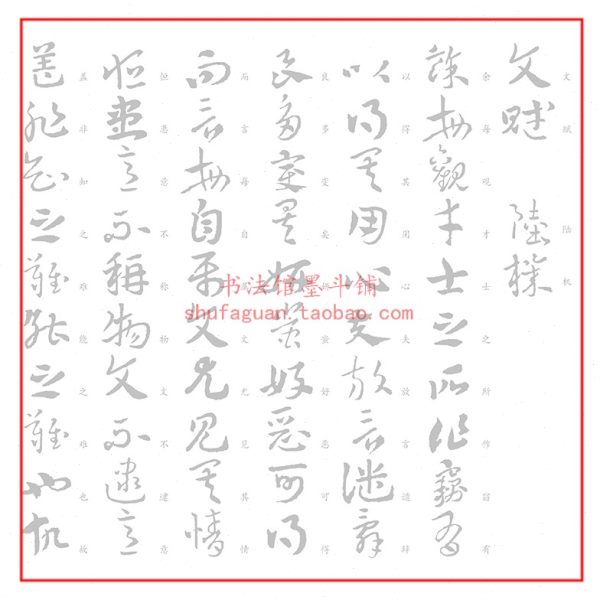 文赋 陆机
文賦 陸機
余每观才士之所作窃有
餘每觀才士之所作竊有
以得其用心夫放言遣辞
以得其用心夫放言遣辭
良多变矣妍蚩好恶可得
良多變矣妍蚩好惡可得
而言每自属文尤见其情
而言每自屬文尤見其情
恒患意不称物文不逮意
恒患意不稱物文不逮意
盖非知之难能之难也故
蓋非知之難能之難也故
书法馆墨斗铺
shufaguan.taobao.com